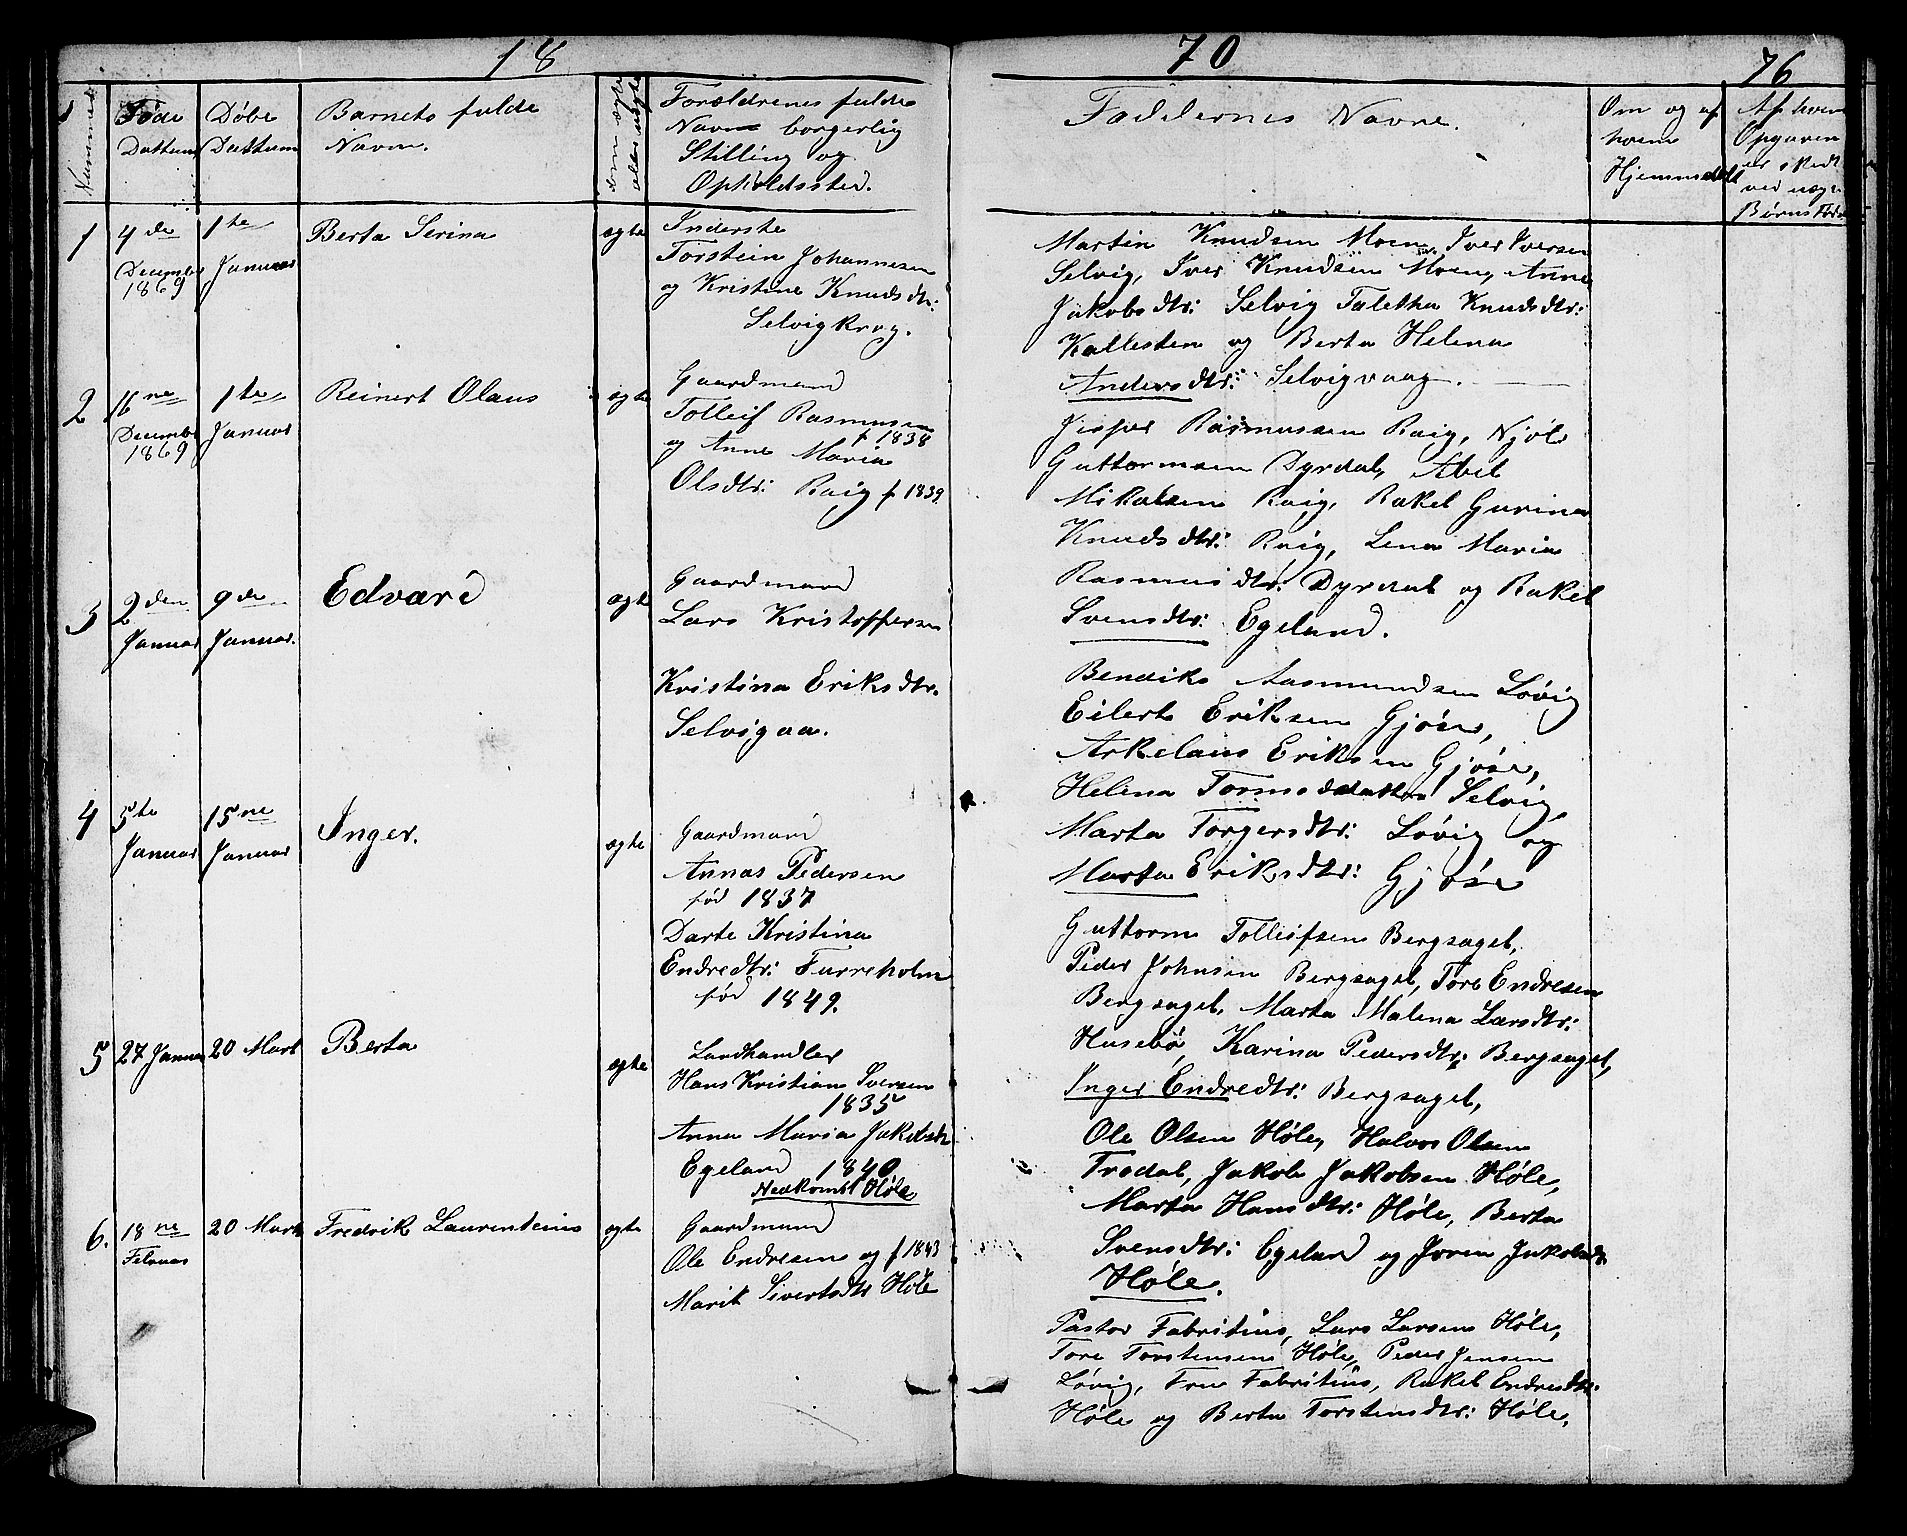 18
70
76
Nummer
Føde
Dattum
Døbe
Dattum
Barnets fulde
Navn.
om ægte
eller uægte
Forældrenes fulde
Navne borgerlig
Stilling og
Opholdssted.
Faddernes Navne.
Om og af
hvem
Hjemmedøbt
Af hvem
Opgaven
er skedt
ved uægte
Børns Fød
1
4de
December
1869
1te
Januar
Berta Serina
ægte
Inderste
Torstein Johannesen
og Kristine Knudsdtr:
Selvigkrog.
Martin Knudsen Moen, Iver Iversen
Selvig, Iver Knudsen Moen, Anne
Jakobsdtr: Selvig Taletha Knudsdtr:
Kallesten og Berta Helena
Andersdtr: Selvigvaag.
2
16ne
December
1869
1te
Januar
Reinert Olaus
ægte
Gaardmand
Tolleif Rasmusen
f 1838
og Anne Maria
Olsdtr: Raig f 1839
Jisper Rasmussen Raig, Njøl
Guttormsen Dyrdal, Abel
Mikalsen Raig, Rakel Gurina
Knudsdtr: Raig, Lena Maria
Rasmusdtr: Dyrdal og Rakel
Svensdtr: Egeland.
3
2den
Januar
9de
Januar.
Edvard
ægte
Gaardmand
Lars Kristoffersen
Kristina Eriksdtr.
Selvigaa.
Bendiks Aasmundsen Løvig
Eilert Eriksen Gjøse,
Arkelaus Eriksen Gjøse,
Helena Tormodsdatter Selvig
Marta Torgersdtr: Løvig og
Marta Eriksdtr: Gjøse
4
5te
Januar
15ne
Januar
Inger.
ægte
Gaardmand
Annas Pedersen
fød 1837
Darte Kristina
Endredtr: Furreholm
fød 1849.
Guttorm Tolleifsen Bergsagel,
Peder Johnsen Bergsagel, Tore Endresen
Bergsagel, Marta Malena Larsdtr:
Husebø, Karina Pedersdtr: Bergsagel,
Inger Endredtr: Bergsagel,
5
27 Januar
20 Mart
Berta
ægte
Landhandler
Hans Kristian Svensen
1835
Anna Maria Jakobsdt
Egeland 1840
Nedkomst Høle
Ole Olsen Høle, Halvor Olsen
Trodal, Jakob Jakobsen Høle,
Marta Hansdtr: Høle, Berta
Svensdtr: Egeland og Joren Jakobsdt
Høle.
6.
18ne
Februar
20 Mart
Fredrik Laurentsius
ægte
Gaardmand
Ole Endresen og f 1843
Marit Sivertsdtr Høle
Pastor Fabritius, Lars Larsen Høle,
Tore Torstensen Høle, Peder Jensen
Løvig, Fru Fabritius, Rakel Endresdtr:
Høle og Berta Torstensdtr: Høle.